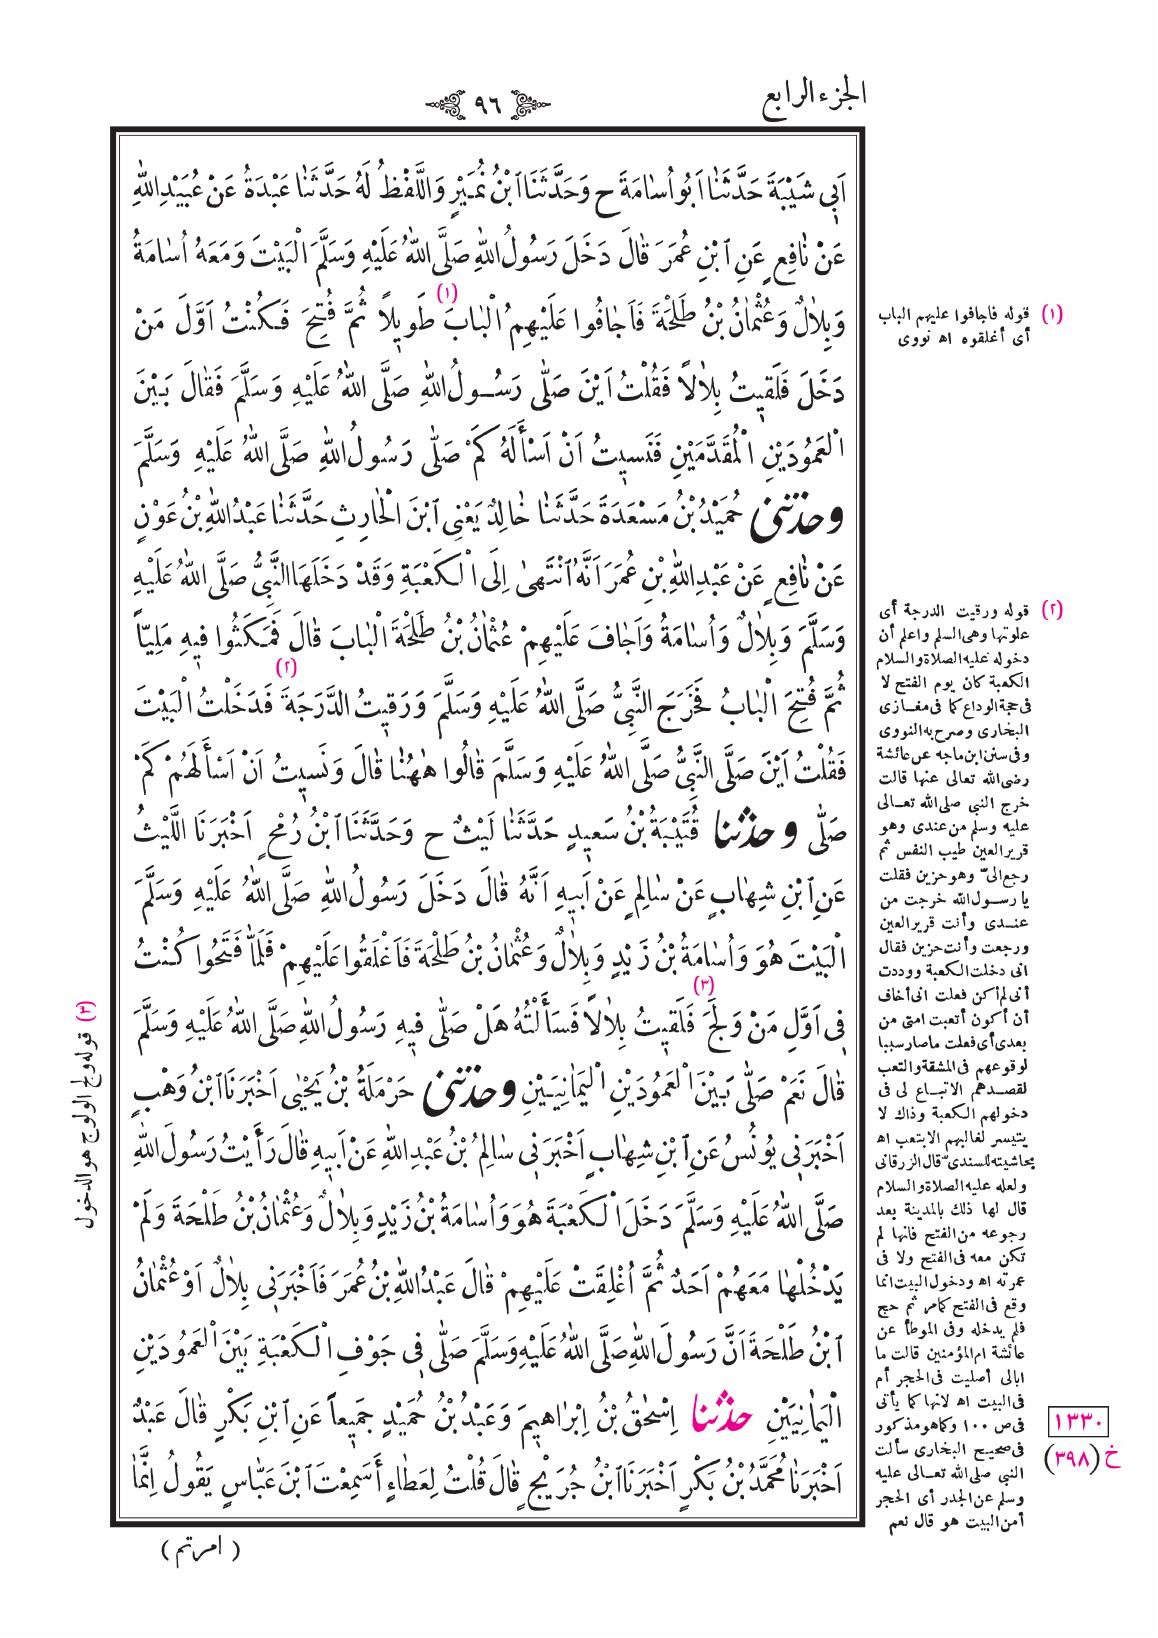 الجزء الرابع
٩٦
اَبِى شَيْبَةَ حَدَّثَنَا اَبُو اُسَامَةَ ح وَحَدَّثَنَا ابْنُ نُمَيْرٍ وَاللَّفْظُ لَهُ حَدَّثَنَا عَبْدَةُ عَنْ عُبَيْدِاللّٰهِ
عَنْ نَافِعٍ عَنِ ابْنِ عُمَرَ قَالَ دَخَلَ رَسُولُ اللّٰهِ صَلَّى اللّٰهُ عَلَيْهِ وَسَلَّمَ الْبَيْتَ وَمَعَهُ اُسَامَةُ
وَبِلَالٌ وَعُثْمَانُ بْنُ طَلْحَةَ فَاَجَافُوا عَلَيْهِمُ الْبَابَ (١) طَوِيلاً ثُمَّ فُتِحَ فَكُنْتُ اَوَّلَ مَنْ
دَخَلَ فَلَقِيتُ بِلَالاً فَقُلْتُ اَيْنَ صَلَّى رَسُولُ اللّٰهِ صَلَّى اللّٰهُ عَلَيْهِ وَسَلَّمَ فَقَالَ بَيْنَ
الْعَمُودَيْنِ الْمُقَدَّمَيْنِ فَنَسِيتُ اَنْ اَسْأَلَهُ كَمْ صَلَّى رَسُولُ اللّٰهِ صَلَّى اللّٰهُ عَلَيْهِ وَسَلَّمَ
وحدثنى حُمَيْدُ بْنُ مَسْعَدَةَ حَدَّثَنَا خَالِدٌ يَعْنِى ابْنَ الْحَارِثِ حَدَّثَنَا عَبْدُ اللّٰهِ بْنُ عَوْنٍ
عَنْ نَافِعٍ عَنْ عَبْدِ اللّٰهِ بْنِ عُمَرَ اَنَّهُ انْتَهَىٰ اِلَى الْكَعْبَةِ وَقَدْ دَخَلَهَا النَّبِىُّ صَلَّى اللّٰهُ عَلَيْهِ
وَسَلَّمَ وَبِلَالٌ وَاُسَامَةُ وَاَجَافَ عَلَيْهِمْ عُثْمَانُ بْنُ طَلْحَةَ الْبَابَ قَالَ فَمَكَثُوا فِيهِ مَلِيّاً
ثُمَّ فُتِحَ الْبَابُ فَخَرَجَ النَّبِىُّ صَلَّى اللّٰهُ عَلَيْهِ وَسَلَّمَ وَرَقِيتُ الدَّرَجَةَ (٢) فَدَخَلْتُ الْبَيْتَ
فَقُلْتُ اَيْنَ صَلَّى النَّبِىُّ صَلَّى اللّٰهُ عَلَيْهِ وَسَلَّمَ قَالُوا هٰهُنَا قَالَ وَنَسِيتُ اَنْ اَسْأَلَهُمْ كَمْ
صَلَّى وحدثنا قُتَيْبَةُ بْنُ سَعِيدٍ حَدَّثَنَا لَيْثٌ ح وَحَدَّثَنَا ابْنُ رُمْحٍ اَخْبَرَنَا اللَّيْثُ
عَنِ ابْنِ شِهَابٍ عَنْ سَالِمٍ عَنْ اَبِيهِ اَنَّهُ قَالَ دَخَلَ رَسُولُ اللّٰهِ صَلَّى اللّٰهُ عَلَيْهِ وَسَلَّمَ
الْبَيْتَ هُوَ وَاُسَامَةُ بْنُ زَيْدٍ وَبِلَالٌ وَعُثْمَانُ بْنُ طَلْحَةَ فَاَغْلَقُوا عَلَيْهِمْ فَلَمَّا فَتَحُوا كُنْتُ
فِى اَوَّلِ مَنْ وَلَجَ (٣) فَلَقِيتُ بِلَالاً فَسَأَلْتُهُ هَلْ صَلَّى فِيهِ رَسُولُ اللّٰهِ صَلَّى اللّٰهُ عَلَيْهِ وَسَلَّمَ
قَالَ نَعَمْ صَلَّى بَيْنَ الْعَمُودَيْنِ الْيَمَانِيَيْنِ وحدثنى حَرْمَلَةُ بْنُ يَحْيٰى اَخْبَرَنَا ابْنُ وَهْبٍ
اَخْبَرَنِى يُونُسُ عَنِ ابْنِ شِهَابٍ اَخْبَرَنِى سَالِمُ بْنُ عَبْدِ اللّٰهِ عَنْ اَبِيهِ قَالَ رَأَيْتُ رَسُولَ اللّٰهِ
صَلَّى اللّٰهُ عَلَيْهِ وَسَلَّمَ دَخَلَ الْكَعْبَةَ هُوَ وَاُسَامَةُ بْنُ زَيْدٍ وَبِلَالٌ وَعُثْمَانُ بْنُ طَلْحَةَ وَلَمْ
يَدْخُلْهَا مَعَهُمْ اَحَدٌ ثُمَّ اُغْلِقَتْ عَلَيْهِمْ قَالَ عَبْدُ اللّٰهِ بْنُ عُمَرَ فَاَخْبَرَنِى بِلَالٌ اَوْ عُثْمَانُ
ابْنُ طَلْحَةَ اَنَّ رَسُولَ اللّٰهِ صَلَّى اللّٰهُ عَلَيْهِ وَسَلَّمَ صَلَّى فِى جَوْفِ الْكَعْبَةِ بَيْنَ الْعَمُودَيْنِ
الْيَمَانِيَيْنِ حدثنا اِسْحٰقُ بْنُ اِبْرَاهِيمَ وَعَبْدُ بْنُ حُمَيْدٍ جَمِيعاً عَنِ ابْنِ بَكْرٍ قَالَ عَبْدٌ
اَخْبَرَنَا مُحَمَّدُ بْنُ بَكْرٍ اَخْبَرَنَا ابْنُ جُرَيْجٍ قَالَ قُلْتُ لِعَطَاءٍ أَسَمِعْتَ ابْنَ عَبَّاسٍ يَقُولُ اِنَّمَا
( امرتم )
(١) قوله فاجافوا عليهم الباب
أى أغلقوه اه نووى
(٢) قوله ورقيت الدرجة أى
علوتها وهى السلم واعلم أن
دخوله عليه الصلاة والسلام
الكعبة كان يوم الفتح لا
فى حجة الوداع كما فى مغازى
البخارى وصرح به النووى
وفى سنن ابن ماجه عن عائشة
رضى الله تعالى عنها قالت
خرج النبي صلى الله تعالى
عليه وسلم من عندى وهو
قرير العين طيب النفس ثم
رجع الىّ وهو حزين فقلت
يا رسول الله خرجت من
عندى وأنت قرير العين
ورجعت وأنت حزين فقال
انى دخلت الكعبة ووددت
أنى لم أكن فعلت انى أخاف
أن أكون أتعبت امتى من
بعدى أى فعلت ما صار سببا
لوقوعهم فى المشقة والتعب
لقصدهم الاتباع لى فى
دخولهم الكعبة وذاك لا
يتيسر لغالبهم الا بتعب اه
بحاشيته للسندىّ قال الزرقانى
ولعله عليه الصلاة والسلام
قال لها ذلك بالمدينة بعد
رجوعه من الفتح فانها لم
تكن معه فى الفتح ولا فى
عمرته اه ودخول البيت انما
وقع فى الفتح كمامر ثم حج
فلم يدخله وفى الموطأ عن
عائشة ام المؤمنين قالت ما
ابالى أصليت فى الحجر أم
فى البيت اه لانها كما يأتى
فى ص ١٠٠ وكما هو مذكور
فى صحيح البخارى سألت
النبي صلى الله تعالى عليه
وسلم عن الجدر أى الحجر
أمن البيت هو قال نعم
١٣٣٠
خ (٣٩٨)
(٣) قوله ولج الولوج هو الدخول